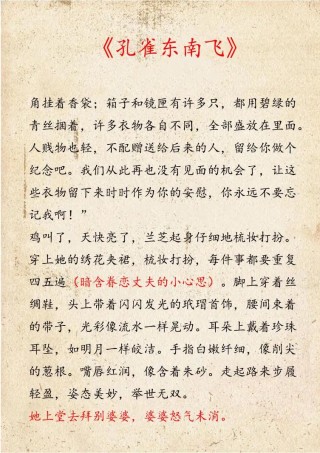 《孔雀东南飞》
角挂着香袋；箱子和镜匣有许多只，都用碧绿的
青丝捆着，许多衣物各自不同，全部盛放在里面。
人贱物也轻，不配赠送给后来的人，留给你做个
纪念吧。我们从此再也没有见面的机会了，让这
些衣物留下来时时作为你的安慰，你永远不要忘
记我啊！”
鸡叫了，天快亮了，兰芝起身仔细地梳妆打扮。
穿上她的绣花夹裙，梳妆打扮，每件事都要重复
四五遍（暗含眷恋丈夫的小心思）。脚上穿着丝
绸鞋，头上带着闪闪发光的玳瑁首饰，腰间束着
的带子，光彩像流水一样晃动。耳朵上戴着珍珠
耳坠，如明月一样皎洁。手指白嫩纤细，像削尖
的葱根。嘴唇红润，像含着朱砂。走起路来步履
轻盈，姿态美妙，举世无双。
她上堂去拜别婆婆，婆婆怒气未消。